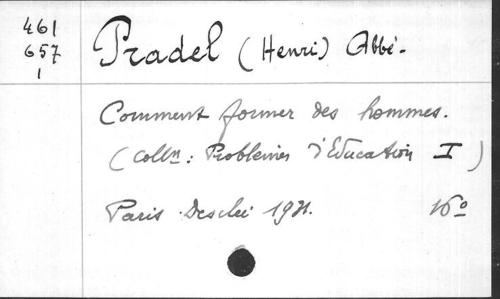 461
657
1
Pradel (Henri) Abbé.
Comment former des hommes.
(Colln: Problèmes d'Education I)
Paris Desclée 16º